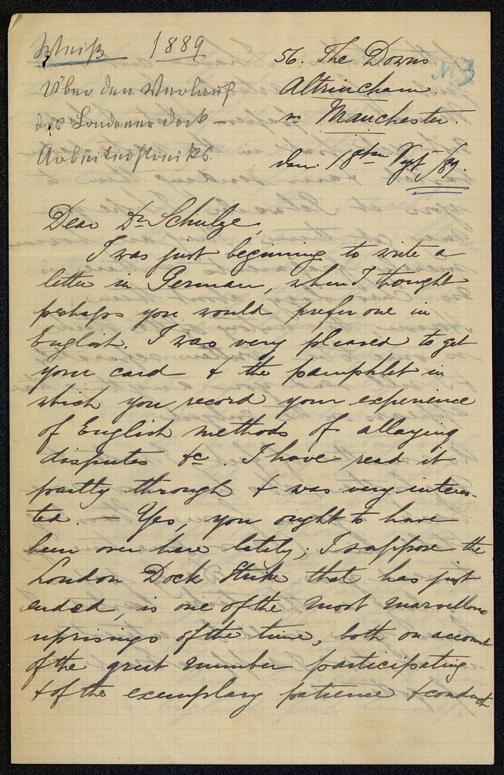 Weiß 1889
Über den Verlauf
des Londoner Dock-
Arbeiterstreiks.
56. The Downs
Altrincham.
nr Manchester.
den 18ten Sept /89.
Dear Dr Schulze,
I was just beginning to write a
letter in German, when I thought
perhaps you would prefer one in
English. I was very pleased to get
your card & the pamphlet in
which you record your experience
of English methods of allaying
disputes &c. I have read it
partly through & was very interes-
ted. — Yes, you ought to have
been over here lately; I suppose the
London Dock Strike that has just
ended, is one of the most marvellous
uprisings of the time, both on account
of the great number participating
& of the exemplary patience & conduct